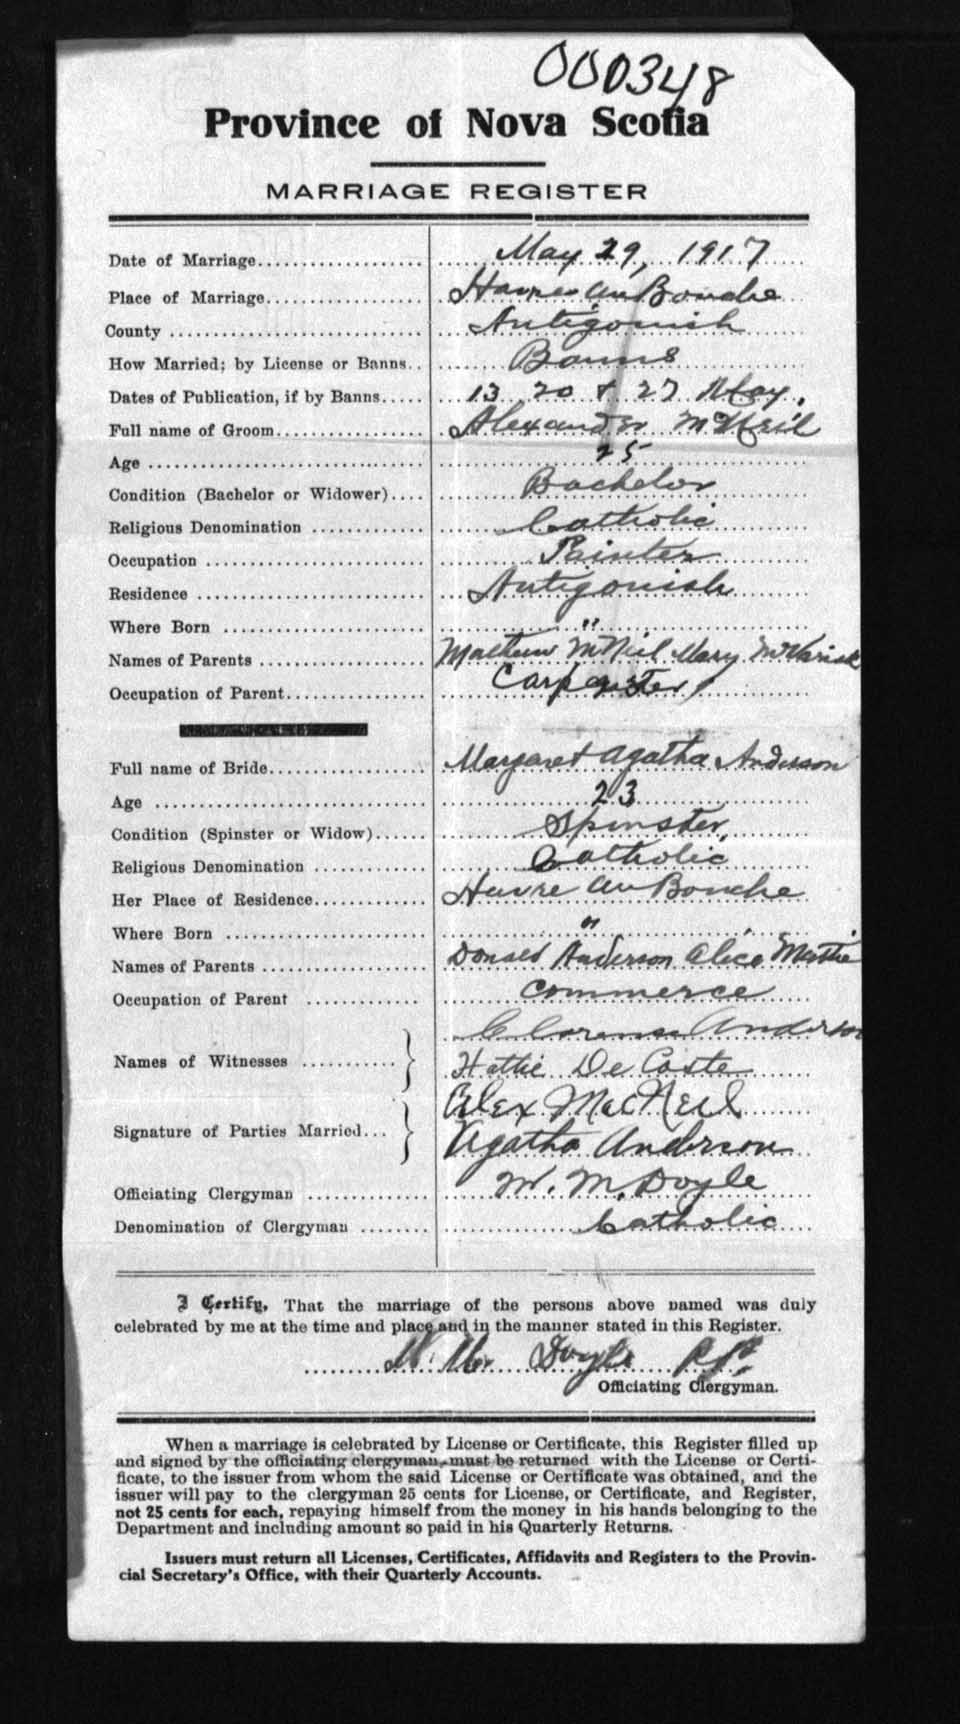 000348
Province of Nova Scotia
MARRIAGE REGISTER
Date of Marriage.................... May 29, 1917
Place of Marriage.................... Havre au Bouche
County .................... Antigonish
How Married; by License or Banns.. Banns
Dates of Publication, if by Banns..... 13 20 & 27 May.
Full name of Groom.................... Alexander McNeil
Age .................... 25
Condition (Bachelor or Widower).... Bachelor
Religious Denomination .................... Catholic
Occupation .................... Painter
Residence .................... Antigonish
Where Born .................... "
Names of Parents .................... Mathew McNeil Mary
Occupation of Parent.................... Carpenter
Full name of Bride.................... Margaret Agatha Anderson
Age .................... 23
Condition (Spinster or Widow)...... Spinster,
Religious Denomination .................... Catholic
Her Place of Residence.................... Havre au Bouche
Where Born .................... "
Names of Parents .................... Donald Anderson Alice
Occupation of Parent .................... Commerce
Clarence Anderson
Names of Witnesses ...........} Hattie De Coste
Alex MacNeil
Signature of Parties Married...} Agatha Anderson
Officiating Clergyman ............ W. M. Doyle
Denomination of Clergyman ........ Catholic
I Certify, That the marriage of the persons above named was duly
celebrated by me at the time and place and in the manner stated in this Register.
Doyle P.P.
Officiating Clergyman.
When a marriage is celebrated by License or Certificate, this Register filled up
and signed by the officiating clergyman, must be returned with the License or Certi-
ficate, to the issuer from whom the said License or Certificate was obtained, and the
issuer will pay to the clergyman 25 cents for License, or Certificate, and Register,
not 25 cents for each, repaying himself from the money in his hands belonging to the
Department and including amount so paid in his Quarterly Returns.
Issuers must return all Licenses, Certificates, Affidavits and Registers to the Provin-
cial Secretary's Office, with their Quarterly Accounts.